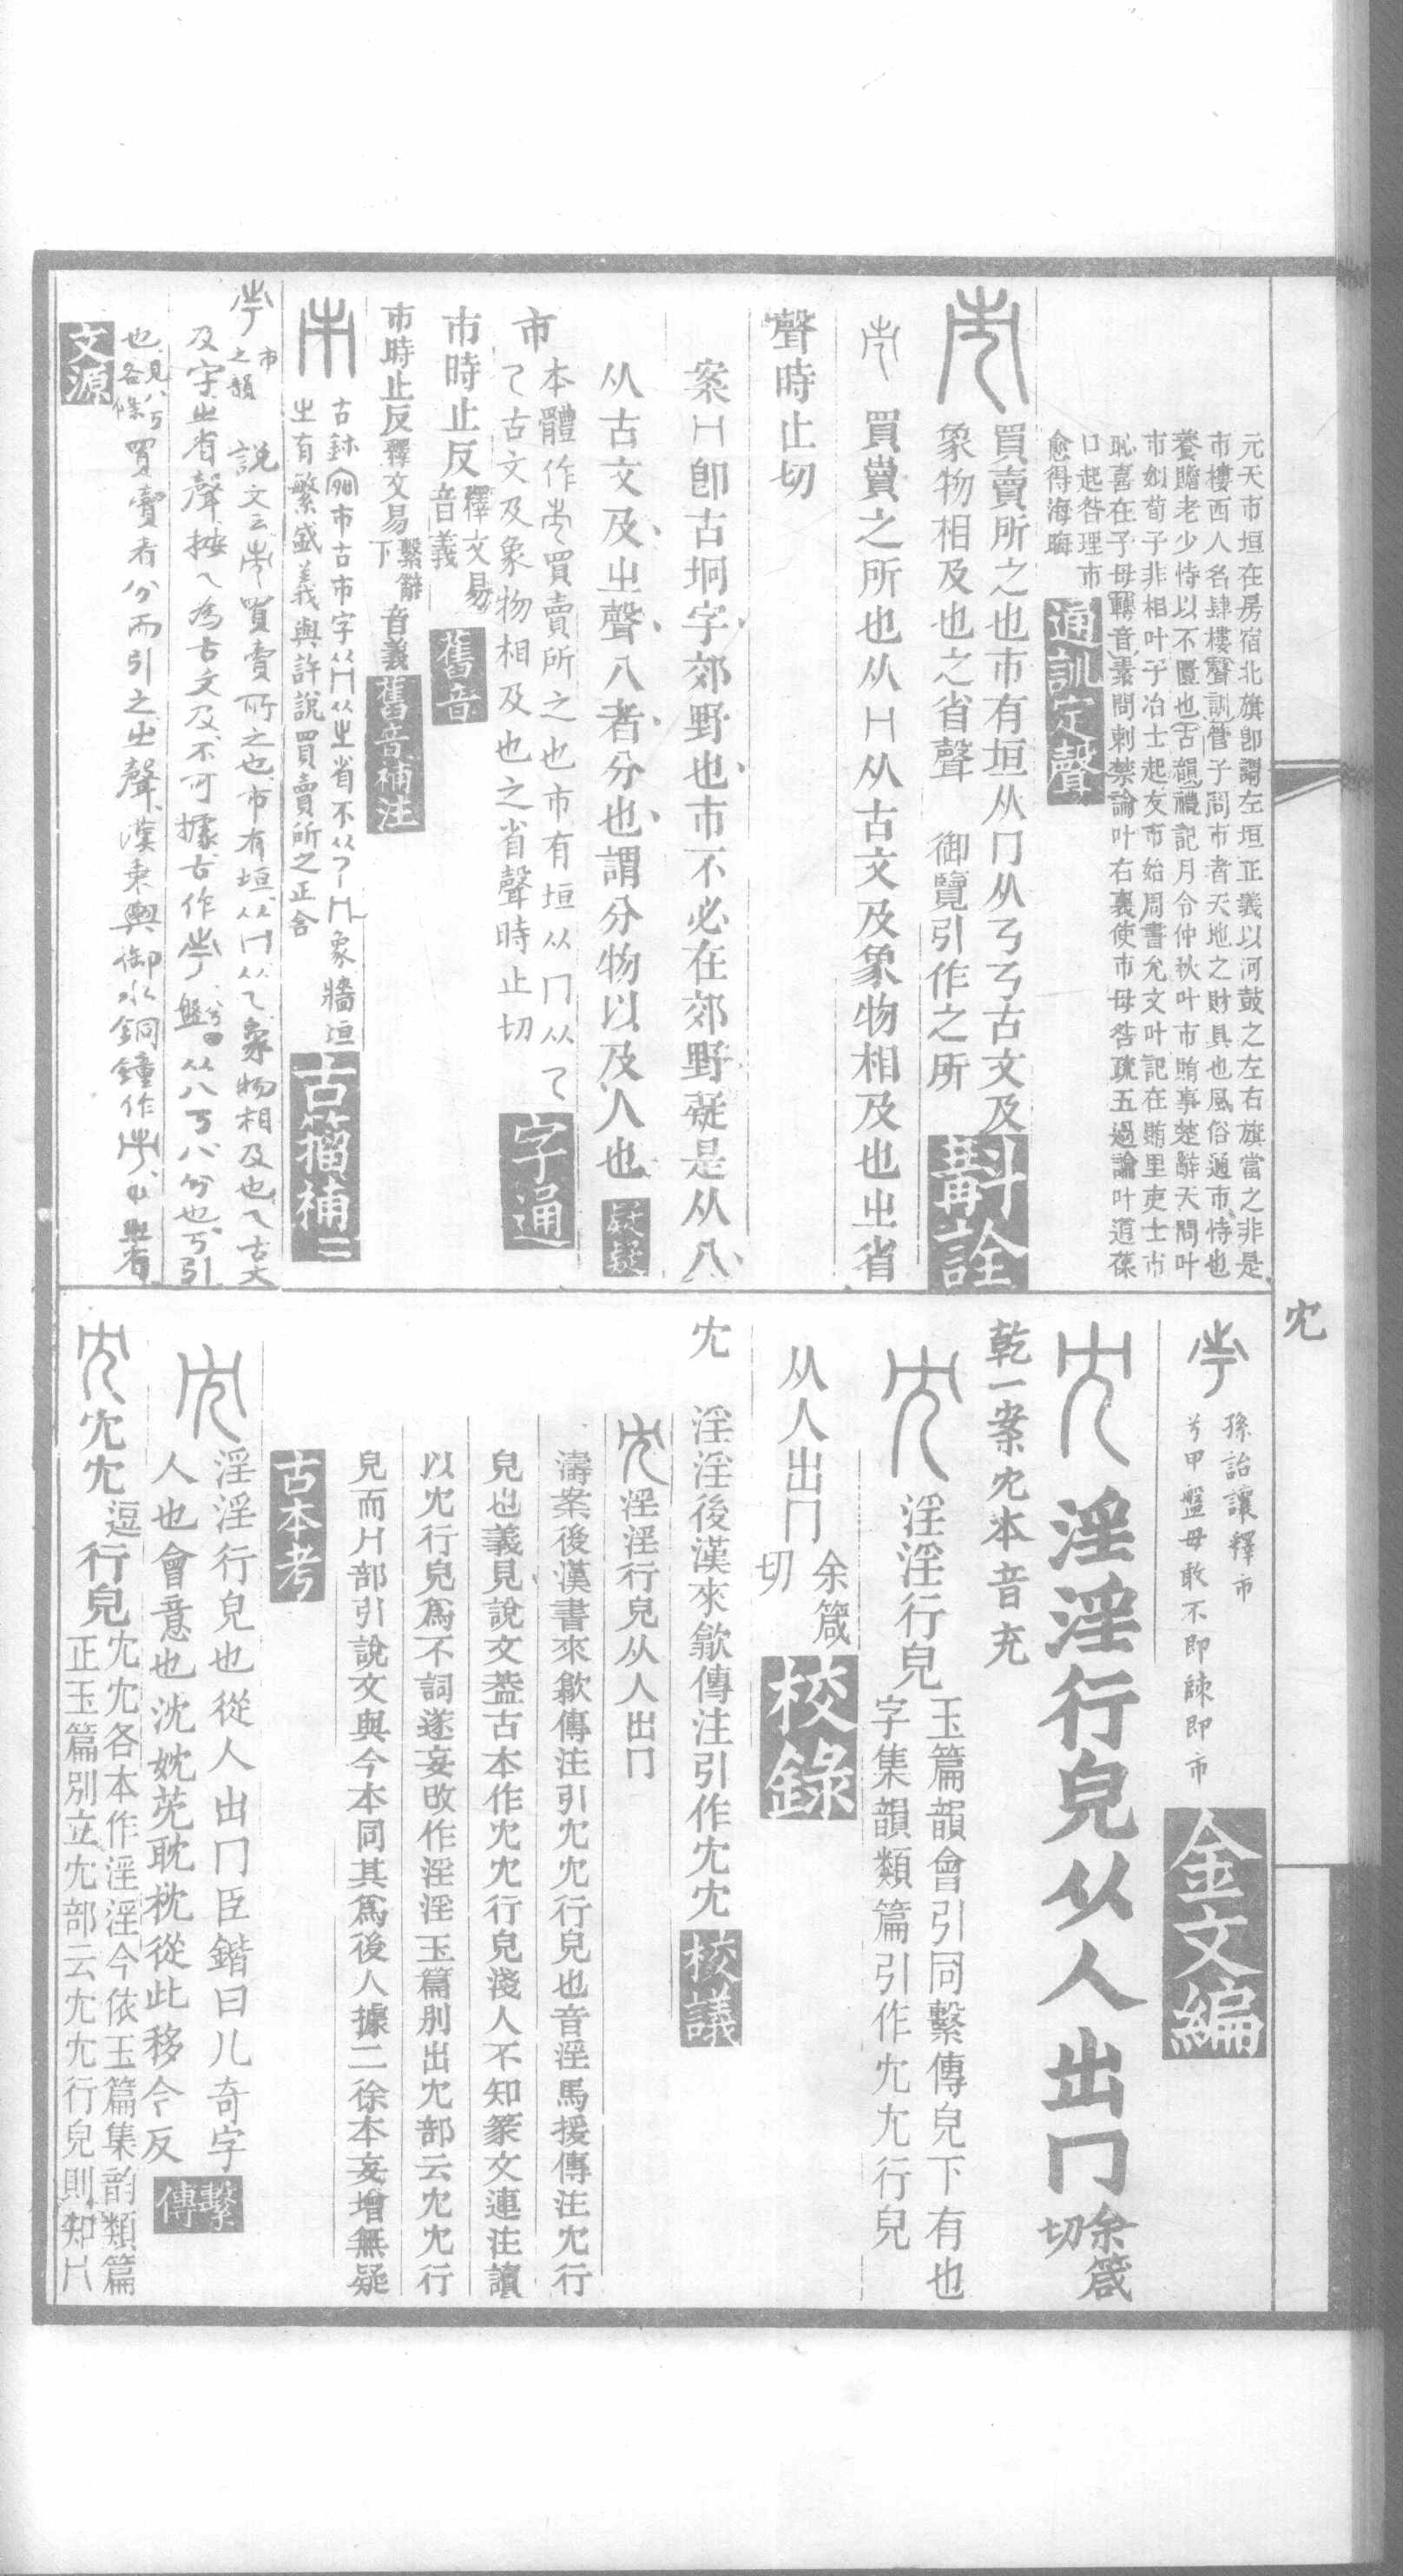 元天市垣在房宿北旗卽謂左垣正義以河鼓之左右旗當之非是
市樓西人名肆樓聲訓管子問市者天地之財具也風俗通市恃也
養贍老少恃以不匱也古韻禮記月令仲秋叶市賄事楚辭天問叶
市姒荀子非相叶子冶士起友市始周書允文叶記在賄里吏士市
恥喜在子母轉音素問刺禁論叶右裏使市母咎疏五過論叶道葆
口起咎理市
愈得海晦
通訓定聲
買賣所之也市有垣从冂从乁乁古文及
象物相及也之省聲 御覽引作之所
斠詮
買賣之所也从冂从古文及象物相及也㞢省
聲時止切
案冂卽古坰字郊野也市不必在郊野疑是从八
从古文及㞢聲八者分也謂分物以及人也
疑疑
市
本體作買賣所之也市有垣从冂从乁
乁古文及象物相及也之省聲時止切
字通
市時止反
釋文易
音義
舊音
市時止反釋文易繫辭下音義
舊音補注
古鉨市古市字从冂从㞢省不从乁冂象牆垣
㞢有繁盛義與許說買賣所之正合
古籀補二
市之韻
說文云買賣所之也市有垣从冂从乁象物相及也乁古文
及字㞢省聲按乁為古文及不可據古作兮盤从八丂八分也丂引
也見八丂各條買賣者分而引之㞢聲漢東輿御水銅鐘作㞢省
文源
宂
孫詒讓釋市
兮甲盤毋敢不即諫即市
金文編
淫淫行皃从人出冂余箴切
乾一案冘本音充
淫淫行皃
玉篇韻會引同繫傳皃下有也
字集韻類篇引作冘冘行皃
从人出冂余箴切
校錄
冘 淫淫後漢來歙傳注引作冘冘
校議
淫淫行皃从人出冂
濤案後漢書來歙傳注引冘冘行皃也音淫馬援傳注冘行
皃也義見說文葢古本作冘冘行皃淺人不知篆文連注讀
以冘行皃爲不詞遂妄改作淫淫玉篇別出冘部云冘冘行
皃而冂部引說文與今本同其爲後人據二徐本妄增無疑
古本考
淫淫行皃也從人出冂臣鍇曰儿奇字
人也會意也沈妉莌耽枕從此移今反
繫傳
冘冘逗行皃
冘冘各本作淫淫今依玉篇集韵類篇
正玉篇別立冘部云冘冘行皃則知冂